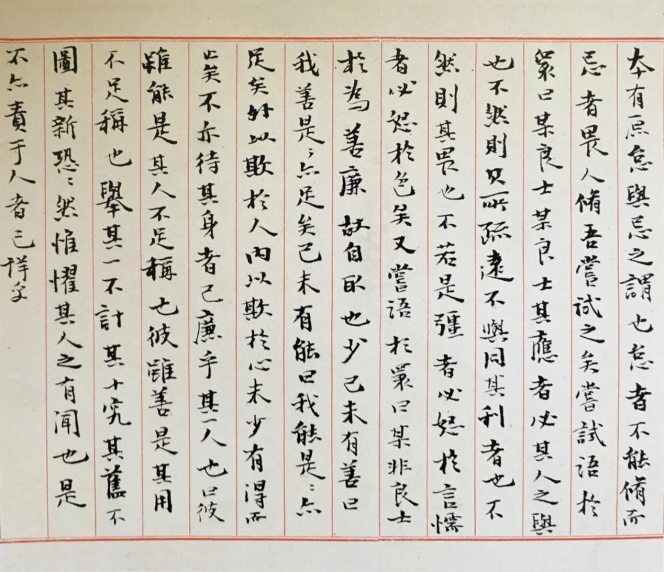 本有原怠與忌之謂也怠者不能脩而
忌者畏人脩吾嘗試之矣嘗試語於
眾曰某良士某良士其應者必其人之與
也不然則其所疏遠不與同其利者也不
然則其畏也不若是彊者必怒於言懦
者必怒於色矣又嘗語於眾曰某非良士
於為善廉故自取也少己未有善曰
我善是〻亦足矣己未有能曰我能是〻亦
足矣外以欺於人內以欺於心未少有得而
止矣不亦待其身者已廉乎其人也曰彼
雖能是其人不足稱也彼雖善是其用
不足稱也舉其一不計其十究其舊不
圖其新恐〻然惟懼其人之有聞也是
不亦責于人者已詳乎